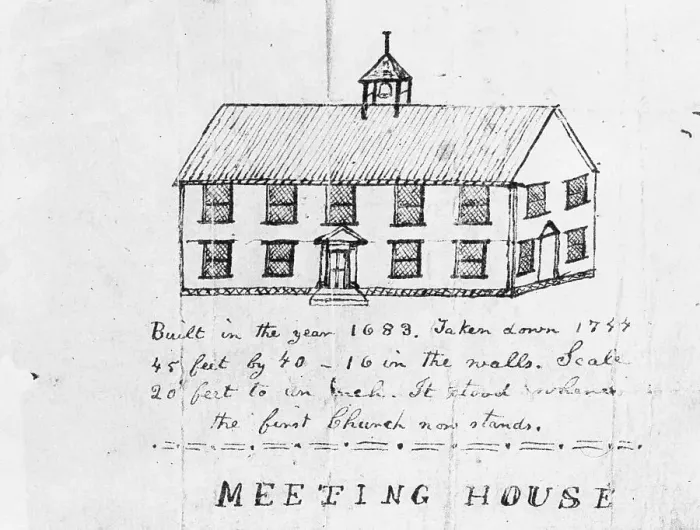 Built in the year 1683. Taken down 1744
45 feet by 40 - 16 in the walls. Scale
20 feet to an Inch. It stood where
the first Church now stands.
MEETING HOUSE